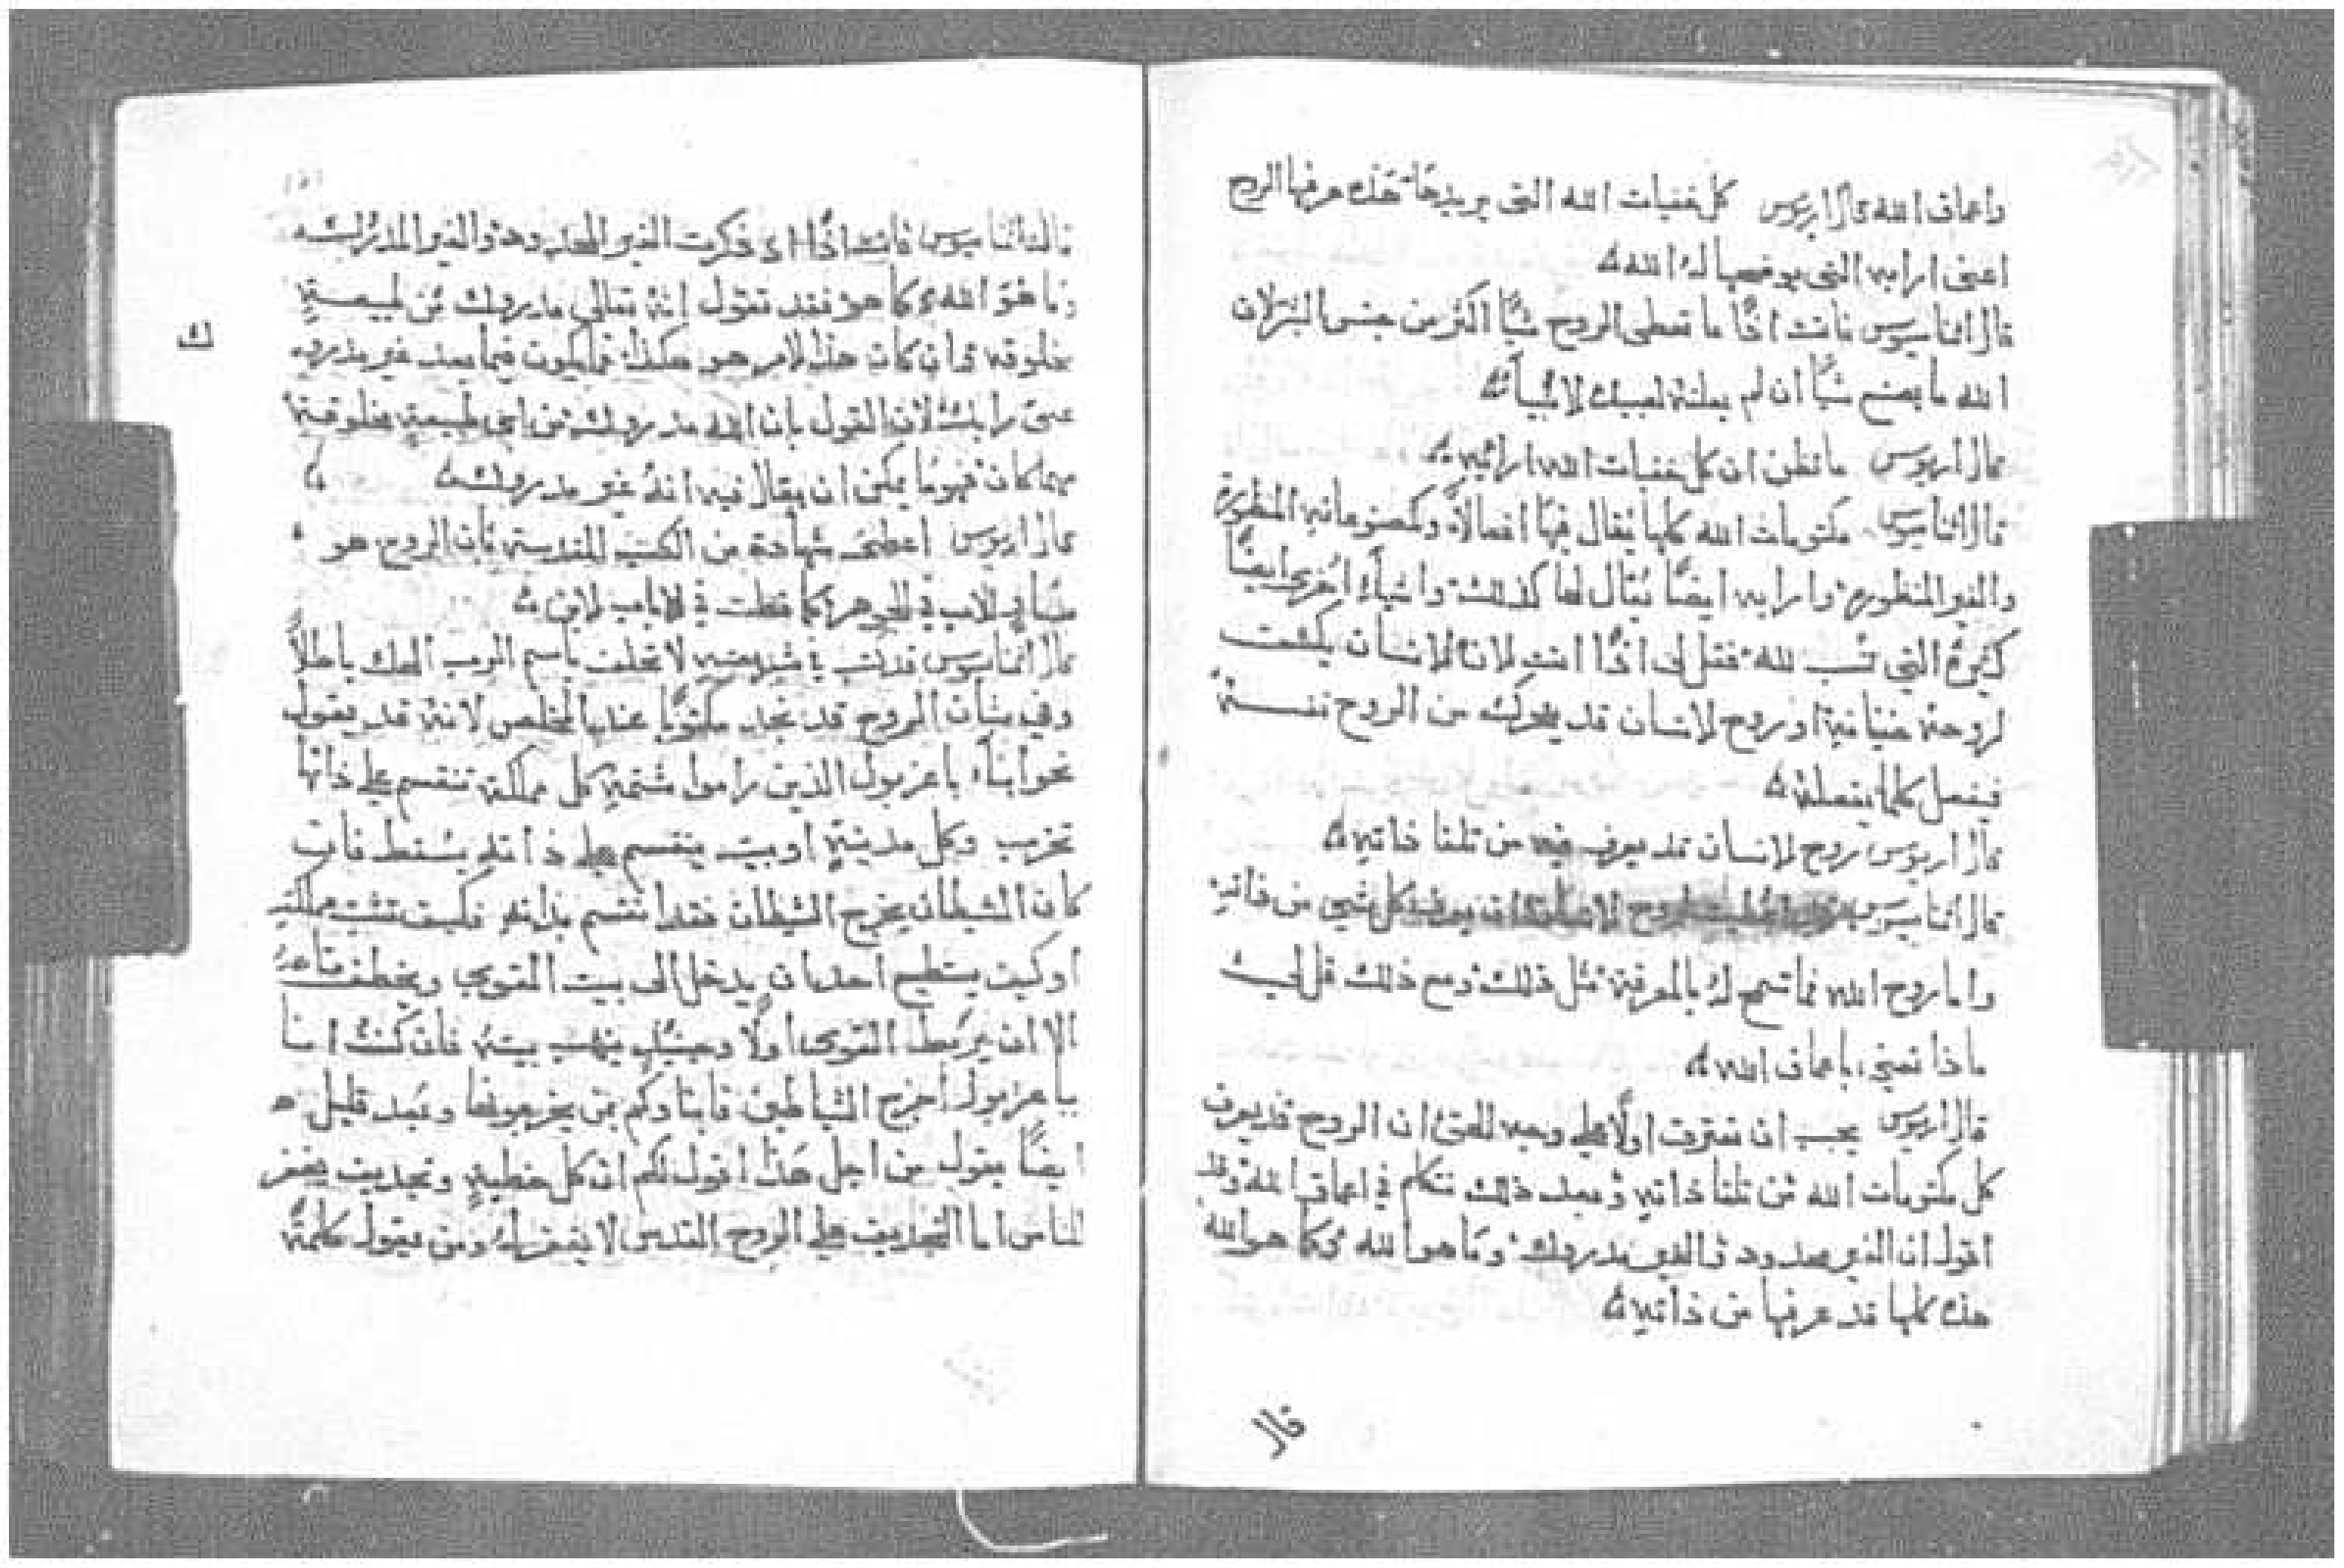 واعماق الله قال اريوس كل خفيات الله التى يريدها هذه عرفها الروح
اعنى ارايه التى يوضحها له الله
قال اثناسيوس فانت اذًا ما تعطى الروح شيًا اكثر من جنس البشر لان
الله ما يصنع شيًا ان لم يعلنه لعبيده الانبيآء
قال اريوس ما تظن ان كل خفيات الله ارائيه
قال اثناسيوس مكتومات الله كلها يقال فيها افعالاً ومصنوعاته المنظورة
والغير المنظورة وارايه ايضًا يُقال لها كذلك واشيآء اُخر ايضًا
كثيرة التى تنسب لله فقل لى اذًا انت لان الانسان يكشف
لروحه خفياته او روح الانسان قد يتحرك من الروح نفسه
فيفعل كلما يفعله
قال اريوس روح الانسان قد يعرف فيه من تلقا ذاته
قال اثناسيوس لروح الانسان ان يعرف كل شى من ذاته
واما روح الله فما تسمح له بالمعرفة مثل ذلك ومع ذلك قل لى
ماذا تعنى باعماق الله
قال اريوس يجب ان تعترف اولًا على وجه الحق ان الروح قد يعرف
كل مكتومات الله من تلقا ذاته وبعد ذلك نتكلم فى اعماق الله وقد
اقول ان الغير محدود والغير مدروك وما هو الله وكما هو الله
هذه كلها قد عرفها من ذاته
قال
قال اثناسيوس فانت اذًا اى ذكرت الغير المحدود والغير المدروك
وما هو الله وكما هو فقد تقول انه تعالى مدروك من طبيعةٍ
مخلوقه وان كان هذا الامر هو هكذا فما يكون فيما بعد غير مدروك
على رايك لان القول بان الله مدروك من اى طبيعةٍ مخلوقة
مهما كان فهو ما يمكن ان يقال فيه انه غير مدروك
ك
قال اريوس اعطنى شهادة من الكتب المقدسة بان الروح هو
مساوٍ للاب فى الجوهر كما فعلت فى الاب والابن
قال اثناسيوس قد كتب فى شريعته لا تحلف باسم الرب الهك باطلاً
وفى شان الروح قد نجد مكتوبًا عند المخلص لانه قد يقول
نحو ابنآء باعزبول الذين راموا شتمه كل مملكة تنقسم على ذاتها
تخرب وكل مدينةٍ او بيت ينقسم على ذاته يسقط فان
كان الشيطان يخرج الشيطان فقد انقسم بذاته فكيف تثبت مملكته
او كيف يستطيع احد ان يدخل الى بيت القوى ويخطف متاعه
الا ان يربط القوى اولًا وحينيذٍ ينهب بيته فان كنت انا
بباعزبول اخرج الشياطين فابناوكم بمن يخرجونها وبعد قليل
ايضًا يقول من اجل هذا اقول لكم ان كل خطيةٍ وتجديف يغفر
للناس اما التجديف على الروح القدس لا يغفر له ومن يقول كلمةً